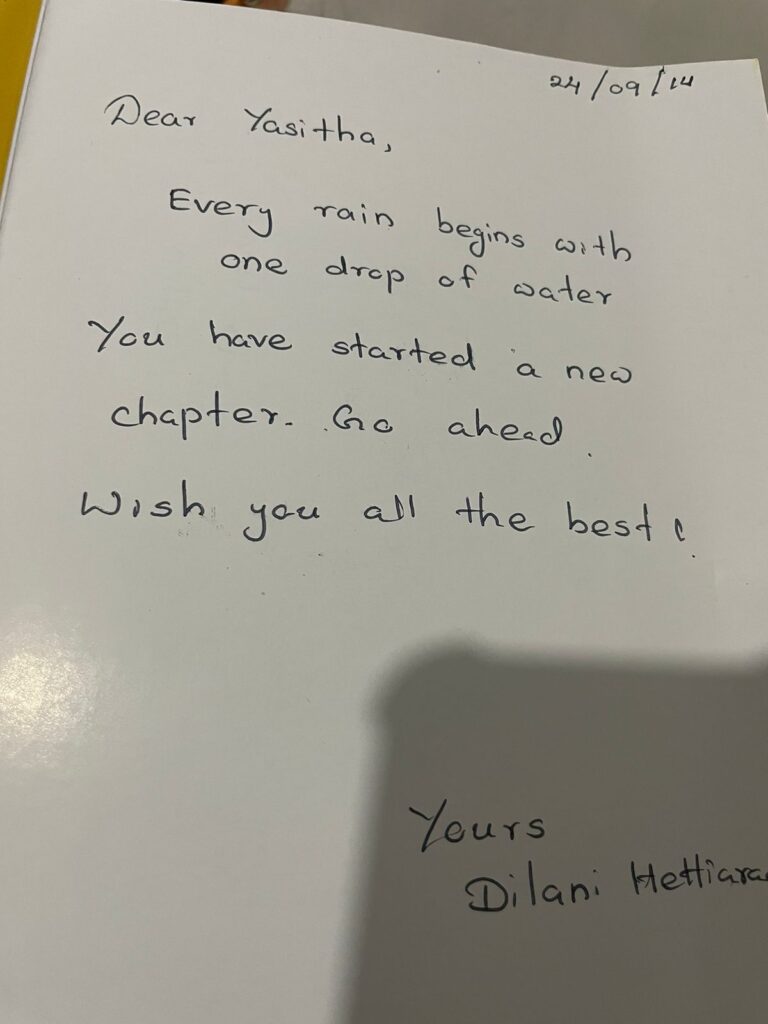 24/09/14
Dear Yasitha,
Every rain begins with
one drop of water
You have started a new
chapter. Go ahead.
Wish you all the best!
Yours
Dilani Hettiara